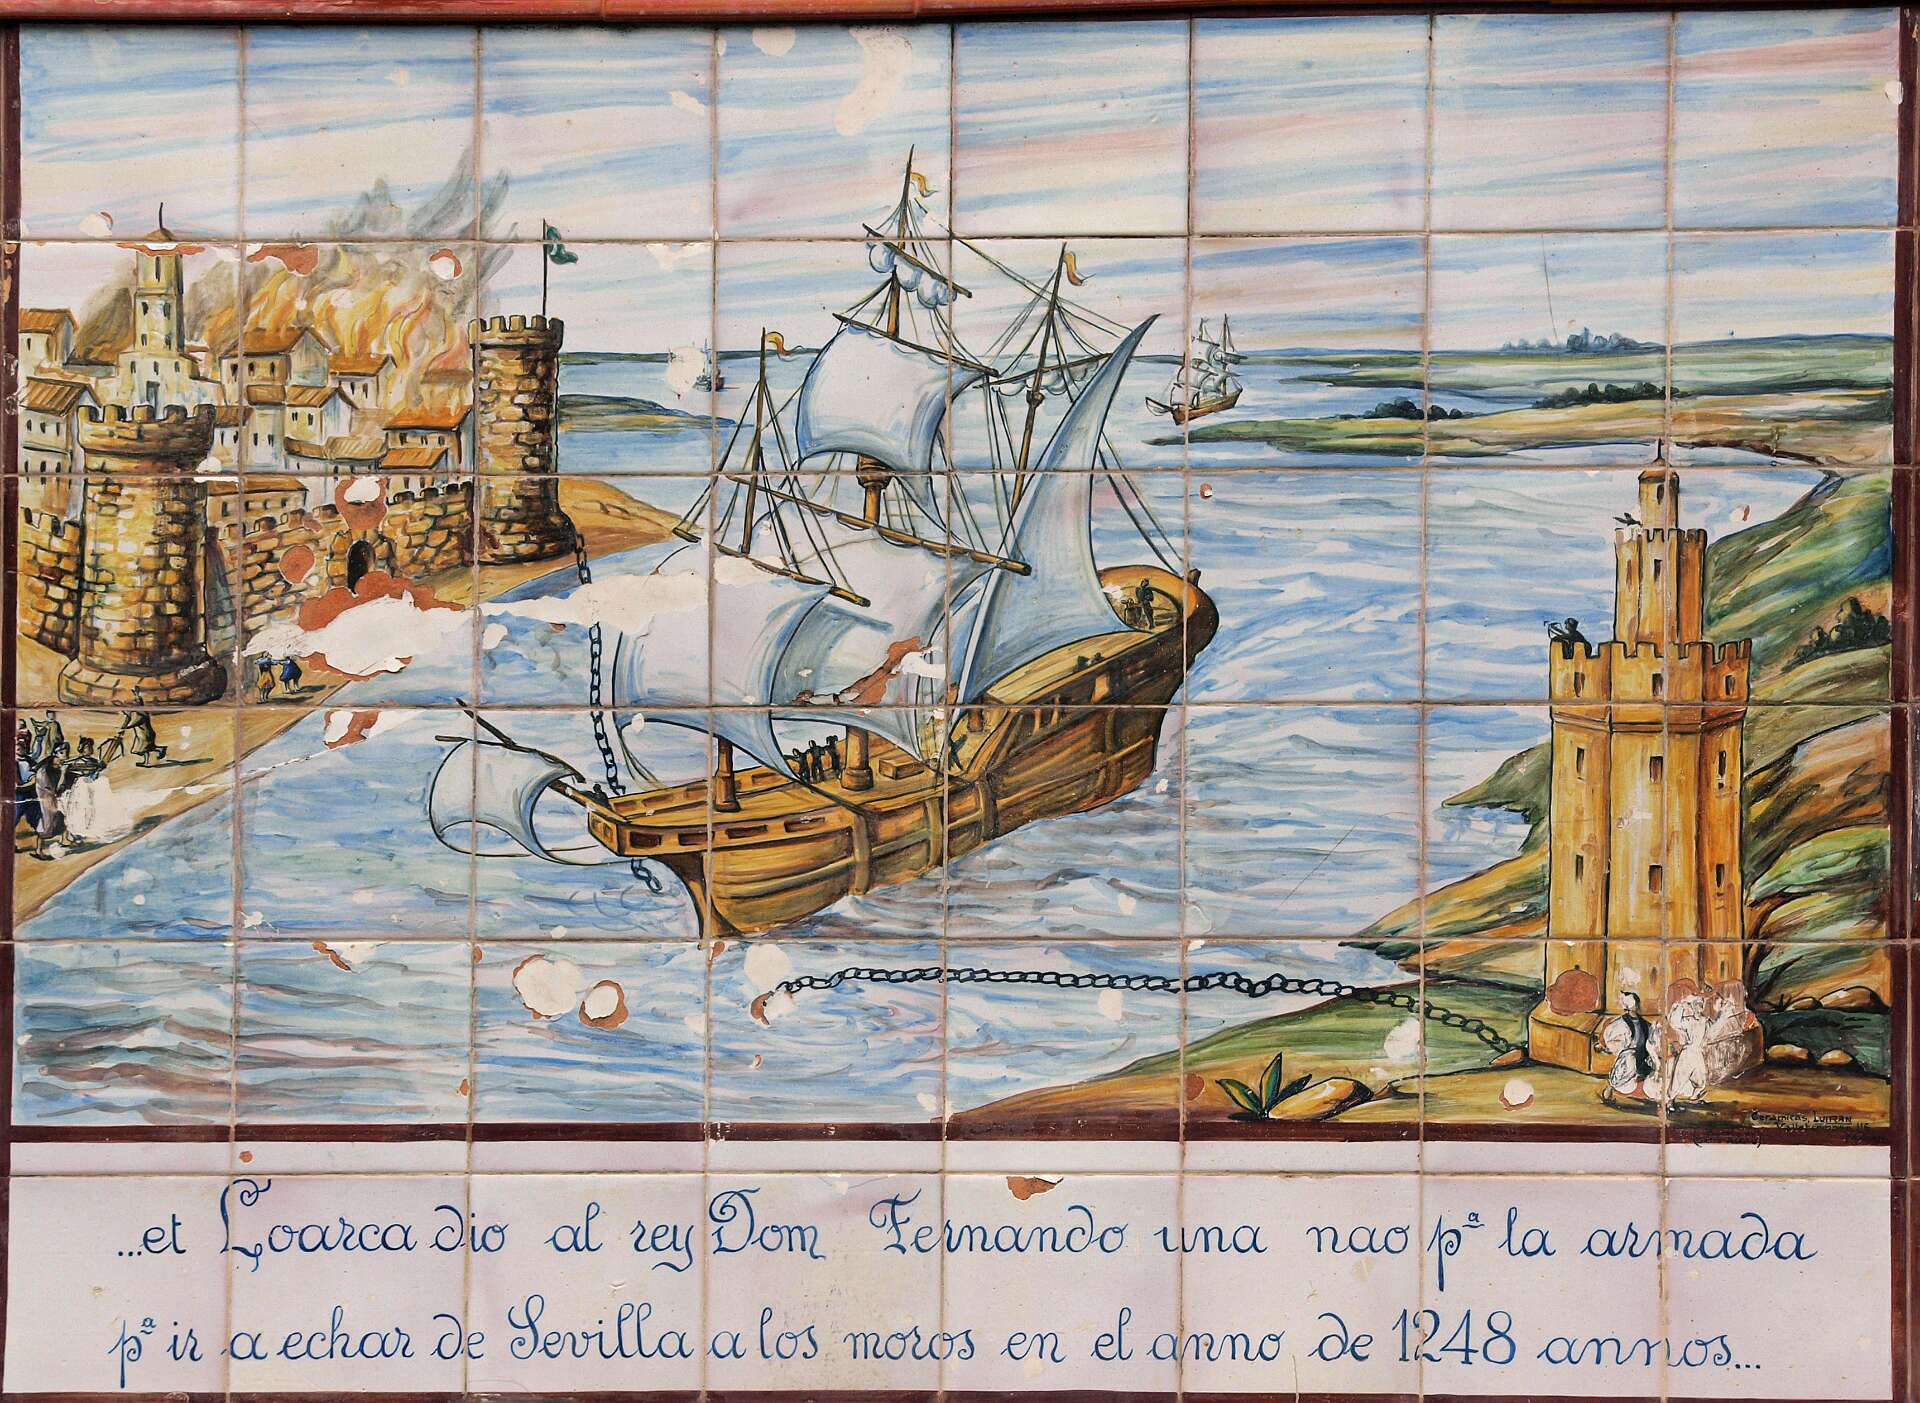 Ceramicas, Lufran
...et Loarca dio al rey Dom Fernando una nao pª la armada
pª ir a echar de Sevilla a los moros en el anno de 1248 annos...